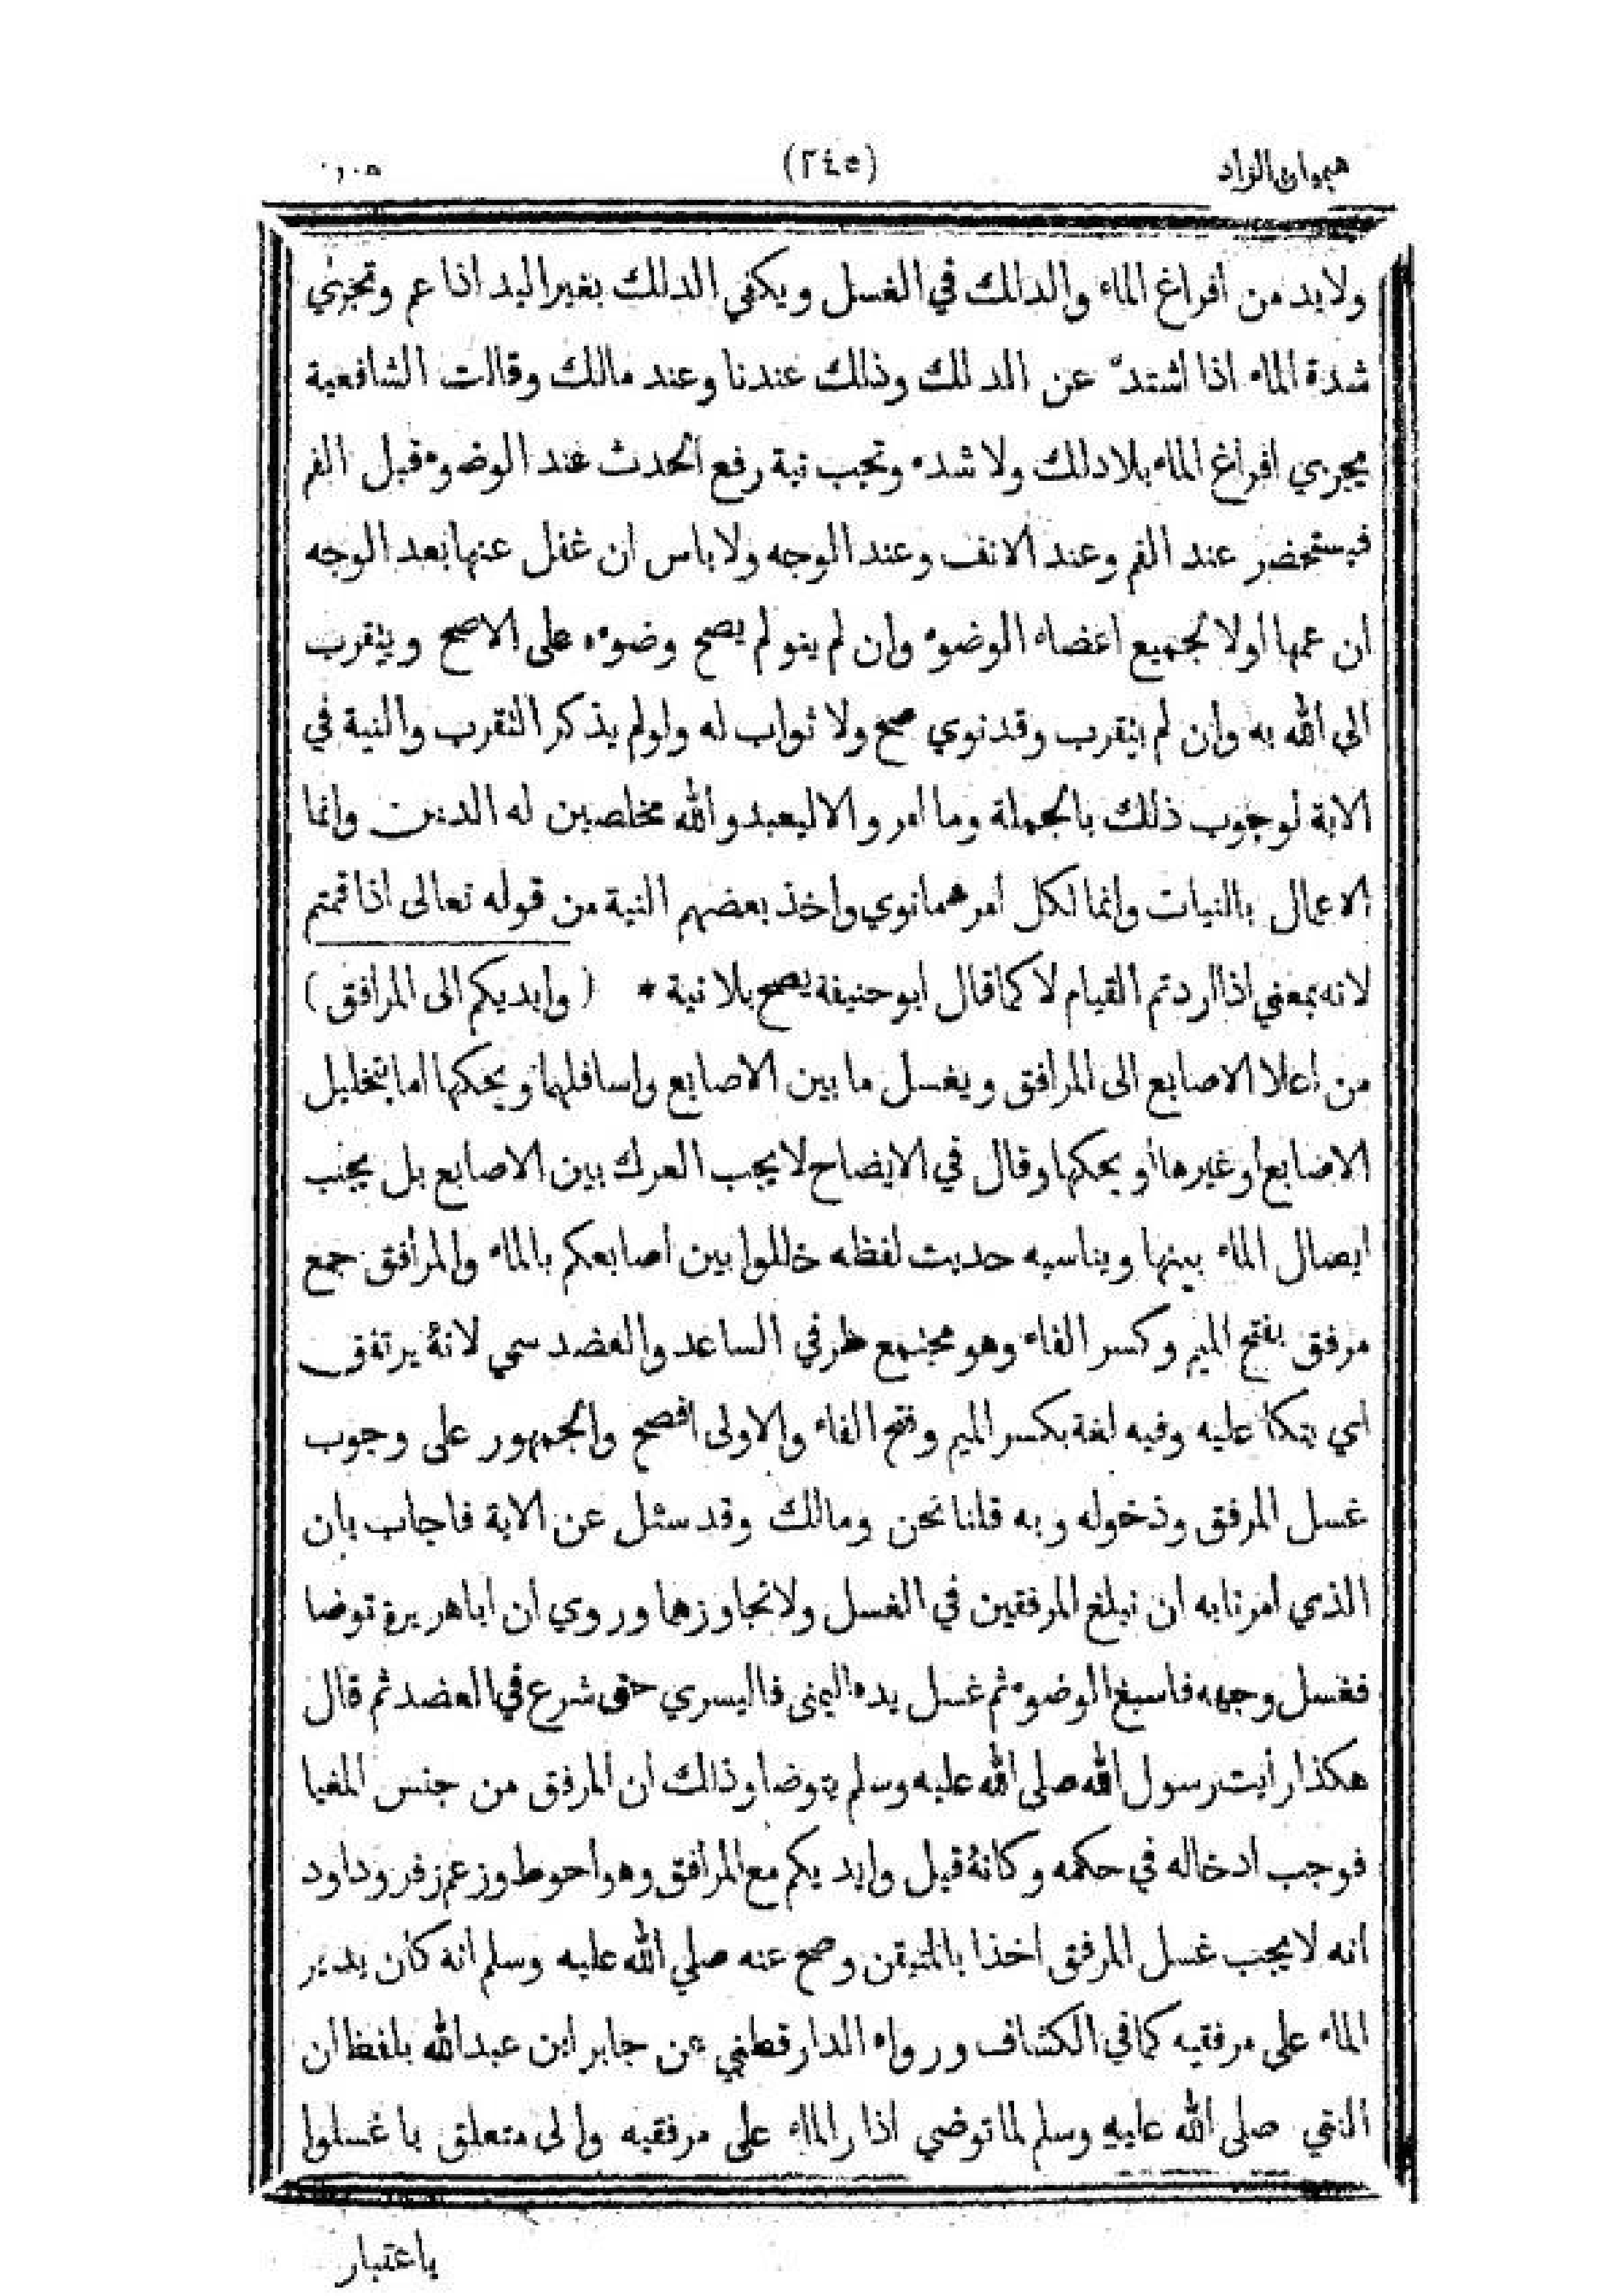 هيميان الزاد (٢٤٥)
ولابد من افراغ الماء والدلك في الغسل ويكفي الدلك بغير اليد اذا عم وتجزئي
شدة الماء اذا اشتد عن الدلك وذلك عندنا وعند مالك وقالت الشافعية
يجزي افراغ الماء بلا دلك ولا شده وتجب نية رفع الحدث عند الوضوء قبل الفم
فيستحضر عند الفم وعند الانف وعند الوجه ولا باس ان غفل عنها بعد الوجه
ان عمها اولا لجميع اعضاء الوضوء وان لم ينو لم يصح وضوءه على الاصح ويتقرب
الى الله به وان لم يتقرب وقد نوي صح ولا ثواب له ولو لم يذكر التقرب والنية في
الاية لوجوب ذلك بالجملة وما امروا الا ليعبدوا الله مخلصين له الدين وانما
الاعمال بالنيات وانما لكل امرء ما نوي واخذ بعضهم النية من قوله تعالى اذا قمتم
لانه بمعني اذا اردتم القيام لا كما قال ابو حنيفة يصح بلا نية * ( وايديكم الى المرافق )
من اعلا الاصابع الى المرافق ويغسل ما بين الاصابع واسافلهما ويحكها اما بتخليل
الاصابع او غيرها او يحكها وقال في الايضاح لا يجب العرك بين الاصابع بل يجب
ايصال الماء بينها ويناسبه حديث لفظه خللوا بين اصابعكم بالماء والمرافق جمع
مرفق بفتح الميم وكسر الفاء وهو مجتمع طرفي الساعد والعضد سمي لانه يرتفق
اي يتكأ عليه وفيه لغة بكسر الميم وفتح الفاء والاولى افصح والجمهور على وجوب
غسل المرفق وذخوله وبه قلنا نحن ومالك وقد سئل عن الاية فاجاب بان
الذي امرنا به ان نبلغ المرفقين في الغسل ولا نجاوزهما وروي ان ابا هريرة توضا
فغسل وجهه فاسبغ الوضوء ثم غسل يده اليمنى فاليسري حتى شرع في العضد ثم قال
هكذا رأيت رسول الله صلى الله عليه وسلم يتوضا وذلك ان المرفق من جنس المغيا
فوجب ادخاله في حكمه وكانه قيل وايديكم مع المرافق وهو احوط وزعم زفر وداود
انه لا يجب غسل المرفق اخذا بالمتيقن وصح عنه صلي الله عليه وسلم انه كان يدير
الماء على مرفقيه كما في الكشاف ورواه الدارقطني عن جابر ابن عبد الله بلفظ ان
النبي صلى الله عليه وسلم لما توضي اذار الماء على مرفقيه والى متعلق باغسلوا
باعتبار